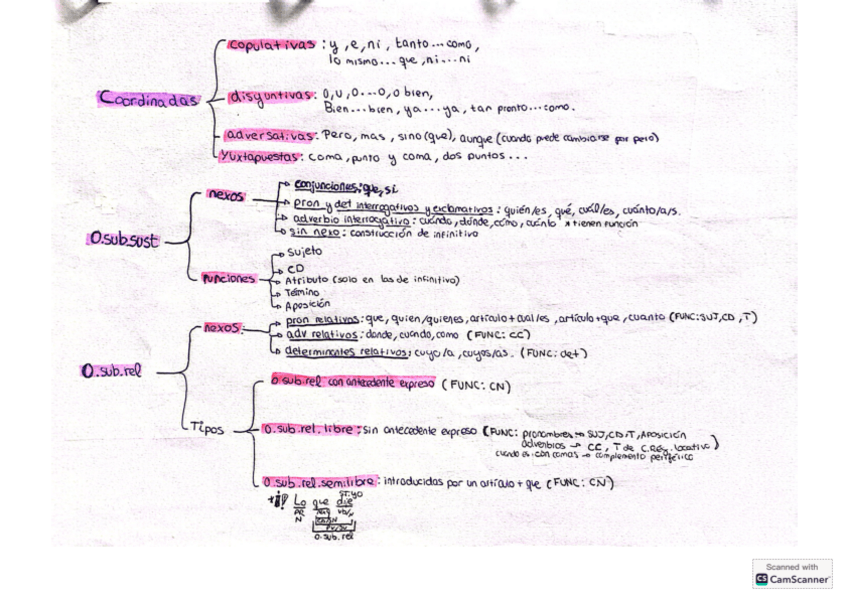 copulativas: y, e, ni, tanto...como,
lo mismo...que, ni...ni
Coordinadas
disyuntivas: o, u, o...o, o bien,
Bien...bien, ya...ya, tan pronto...como.
adversativas: Pero, mas, sino(que), aunque (cuando puede cambiarse por pero)
Yuxtapuestas: coma, punto y coma, dos puntos...
nexos
conjunciones: que, si
pron y det interrogativos y exclamativos: quién/es, qué, cuál/es, cuánto/a/s.
adverbio interrogativo: cuándo, dónde, cómo, cuánto * tienen función
sin nexo: construcción de infinitivo
O.sub.sust
funciones
Sujeto
CD
Atributo (solo en las de infinitivo)
Término
Aposición
nexos:
pron relativos: que, quien/quienes, artículo+cual/es, artículo+que, cuanto (FUNC: SUJ, CD, T)
adv relativos: donde, cuando, como (FUNC: CC)
determinantes relativos: cuyo/a, cuyos/as. (FUNC: det)
O.sub.rel
Tipos
o.sub.rel con antecedente expreso (FUNC: CN)
o.sub.rel.libre: sin antecedente expreso (FUNC: pronombres → SUJ, CD, T, APOSICIÓN
adverbios → CC, T de C.Rég. locativo)
cuando es con comas → complemento periférico
o.sub.rel.semilibre: introducidas por un artículo + que (FUNC: CN)
Lo que dije
N
O.sub.rel
Scanned with
CS CamScanner